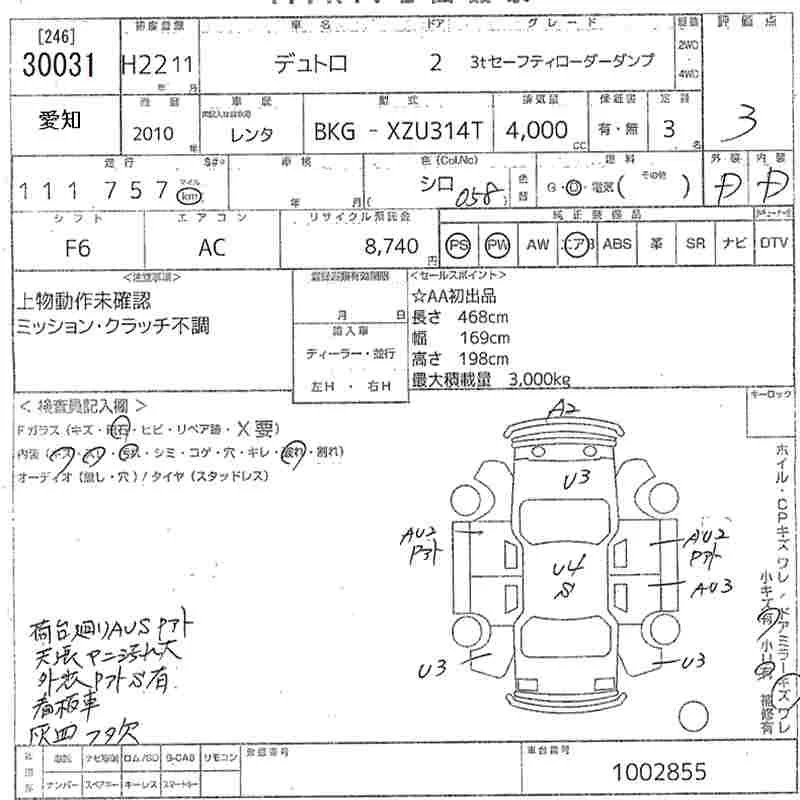 [246]
30031
車名 ドア グレード 評価点
H22 11 年 月
デュトロ 2 3tセーフティローダーダンプ
2WD
4WD
愛知
車歴 型式 排気量 保証書 定員
2010 年
レンタ
BKG - XZU314T 4,000 CC 有・無 3 名
3
走行 車検 色(Col.No) 燃料 外装 内装
111757 マイル km
年 月
シロ 058
色替
G・D・電気( その他 )
シフト エアコン リサイクル預託金 純正装備品
F6 AC 8,740 円
PS PW AW エアB ABS 革 SR ナビ DTV
<注意事項>
上物動作未確認
ミッション・クラッチ不調
登録書類有効期限
月 日
輸入車
ディーラー・並行
左H・右H
<セールスポイント>
☆AA初出品
長さ 468cm
幅 169cm
高さ 198cm
最大積載量 3,000kg
キーロック
<検査員記入欄>
Fガラス(キズ・飛石・ヒビ・リペア跡・X要)
内装(キズ・スレ・汚れ・シミ・コゲ・穴・キレ・破れ・割れ)
オーディオ(無し・穴)/タイヤ(スタッドレス)
A2
U3
AU2
Pアト
AU2
Pアト
U4
S
AU3
U3
U3
ホイル・CPキズ ワレ / ドアミラーキズ ワレ
小キズ有 小U有 補修有
荷台廻りAUS Pアト
天張ヤニ汚れ大
外装PアトS有
看板車
灰皿フタ欠
ナビROM/SD B-CAS リモコン
ナンバー スペアキー キーレス スマートキー
登録番号
車台番号
1002855